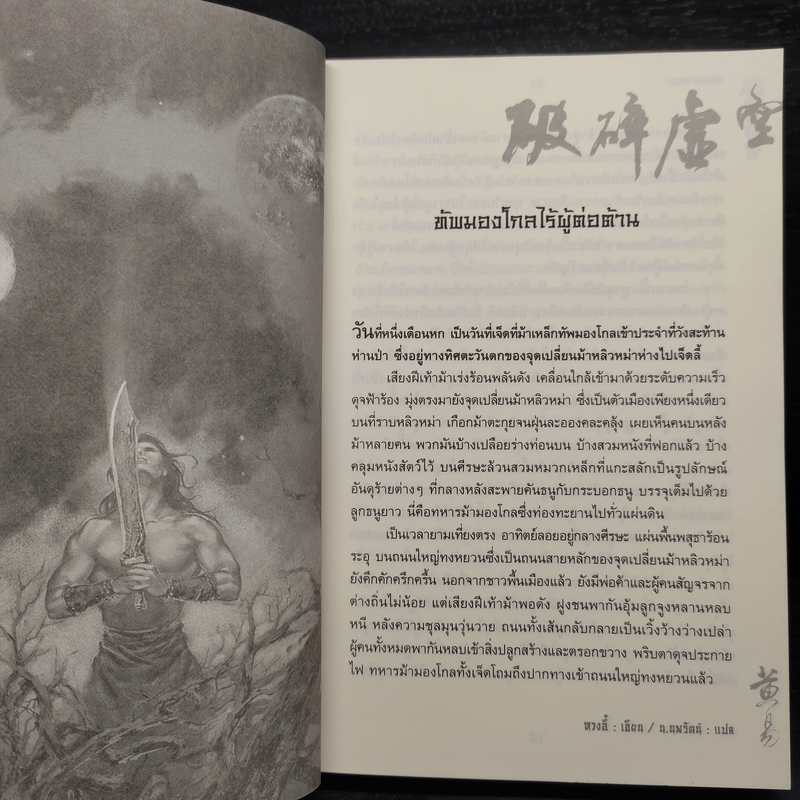 破碎虛空
ทัพมองโกลไร้ผู้ต่อต้าน
วันที่หนึ่งเดือนหก เป็นวันที่เจ็ดที่ม้าเหล็กทัพมองโกลเข้าประจำที่วังสะท้าน
ห่านป่า ซึ่งอยู่ทางทิศตะวันตกของจุดเปลี่ยนม้าหลิวหม่าห่างไปเจ็ดลี้
เสียงฝีเท้าม้าเร่งร้อนพลันดัง เคลื่อนใกล้เข้ามาด้วยระดับความเร็ว
ดุจฟ้าร้อง มุ่งตรงมายังจุดเปลี่ยนม้าหลิวหม่า ซึ่งเป็นตัวเมืองเพียงหนึ่งเดียว
บนที่ราบหลิวหม่า เกือกม้าตะกุยจนฝุ่นละอองคละคลุ้ง เผยเห็นคนบนหลัง
ม้าหลายคน พวกมันบ้างเปลือยร่างท่อนบน บ้างสวมหนังที่ฟอกแล้ว บ้าง
คลุมหนังสัตว์ไว้ บนศีรษะล้วนสวมหมวกเหล็กที่แกะสลักเป็นรูปลักษณ์
อันดุร้ายต่างๆ ที่กลางหลังสะพายคันธนูกับกระบอกธนู บรรจุเต็มไปด้วย
ลูกธนูยาว นี่คือทหารม้ามองโกลซึ่งท่องทะยานไปทั่วแผ่นดิน
เป็นเวลายามเที่ยงตรง อาทิตย์ลอยอยู่กลางศีรษะ แผ่นพื้นพสุธาร้อน
ระอุ บนถนนใหญ่ทงหยวนซึ่งเป็นถนนสายหลักของจุดเปลี่ยนม้าหลิวหม่า
ยังคึกคักครึกครื้น นอกจากชาวพื้นเมืองแล้ว ยังมีพ่อค้าและผู้คนสัญจรจาก
ต่างถิ่นไม่น้อย แต่เสียงฝีเท้าม้าพอดัง ฝูงชนพากันอุ้มลูกจูงหลานหลบ
หนี หลังความชุลมุนวุ่นวาย ถนนทั้งเส้นกลับกลายเป็นเวิ้งว้างว่างเปล่า
ผู้คนทั้งหมดพากันหลบเข้าสิ่งปลูกสร้างและตรอกขวาง พริบตาดุจประกาย
ไฟ ทหารม้ามองโกลทั้งเจ็ดโถมถึงปากทางเข้าถนนใหญ่ทงหยวนแล้ว
หวงอี้ : เขียน / น.นพรัตน์ : แปล
黄易